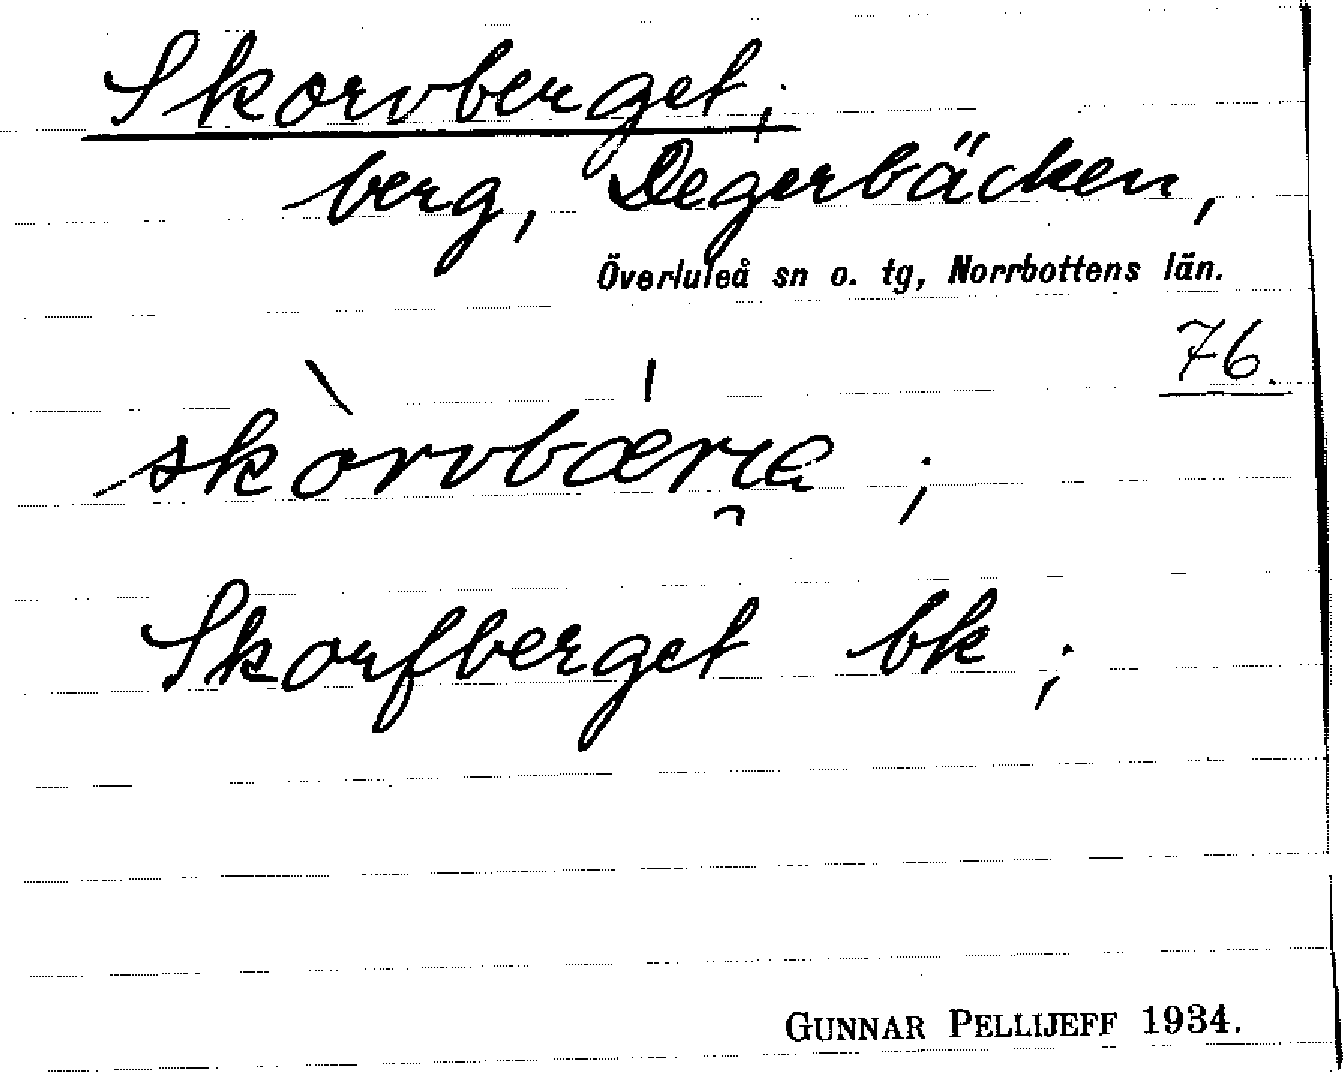 Skorvberget;
berg, Degerbäcken,
Överluleå sn o. tg, Norrbottens län.
76.
skòrvbærıe ;
Skorfberget bk ;
GUNNAR PELLIJEFF 1934.